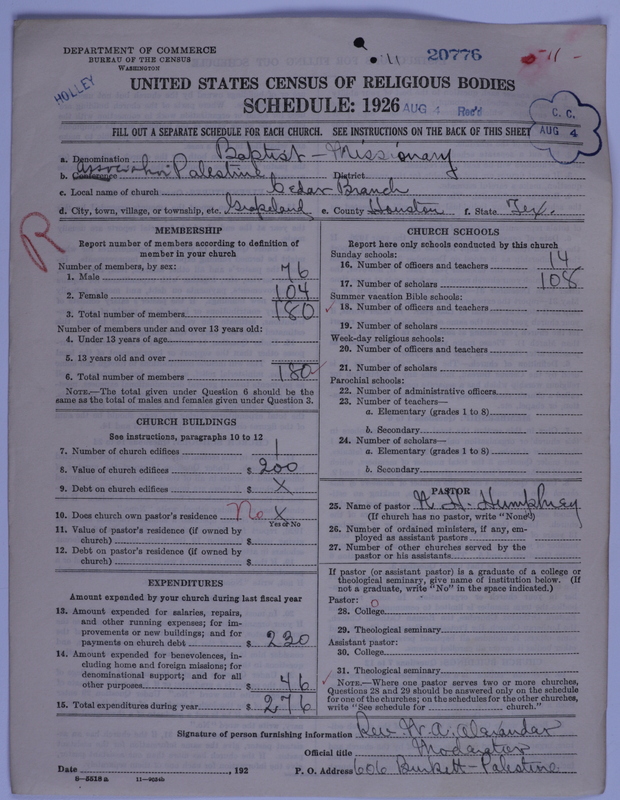 DEPARTMENT OF COMMERCE
BUREAU OF THE CENSUS
WASHINGTON
20776
HOLLEY
UNITED STATES CENSUS OF RELIGIOUS BODIES
SCHEDULE: 1926
AUG 4 Rec'd
C. C.
AUG 4
FILL OUT A SEPARATE SCHEDULE FOR EACH CHURCH. SEE INSTRUCTIONS ON THE BACK OF THIS SHEET
a. Denomination Baptist - Missionary
b. Conference Association Palestine District
c. Local name of church Cedar Branch
d. City, town, village, or township, etc. Grapeland e. County Houston f. State Tex.
R
MEMBERSHIP
Report number of members according to definition of member in your church
Number of members, by sex:
1. Male 76
2. Female 104
3. Total number of members 180
Number of members under and over 13 years old:
4. Under 13 years of age
5. 13 years old and over
6. Total number of members 180
NOTE.—The total given under Question 6 should be the same as the total of males and females given under Question 3.
CHURCH BUILDINGS
See instructions, paragraphs 10 to 12
7. Number of church edifices 1
8. Value of church edifices $ 200
9. Debt on church edifices $ X
10. Does church own pastor's residence No X
Yes or No
11. Value of pastor's residence (if owned by church) $
12. Debt on pastor's residence (if owned by church) $
EXPENDITURES
Amount expended by your church during last fiscal year
13. Amount expended for salaries, repairs, and other running expenses; for improvements or new buildings; and for payments on church debt $ 230
14. Amount expended for benevolences, including home and foreign missions; for denominational support; and for all other purposes $ 46
15. Total expenditures during year $ 276
CHURCH SCHOOLS
Report here only schools conducted by this church
Sunday schools:
16. Number of officers and teachers 14
17. Number of scholars 108
Summer vacation Bible schools:
18. Number of officers and teachers
19. Number of scholars
Week-day religious schools:
20. Number of officers and teachers
21. Number of scholars
Parochial schools:
22. Number of administrative officers
23. Number of teachers—
a. Elementary (grades 1 to 8)
b. Secondary
24. Number of scholars—
a. Elementary (grades 1 to 8)
b. Secondary
PASTOR
25. Name of pastor H. Humphrey
(If church has no pastor, write "None")
26. Number of ordained ministers, if any, employed as assistant pastors
27. Number of other churches served by the pastor or his assistants
If pastor (or assistant pastor) is a graduate of a college or theological seminary, give name of institution below. (If not a graduate, write "No" in the space indicated.)
Pastor:
28. College
29. Theological seminary
Assistant pastor:
30. College
31. Theological seminary
NOTE.—Where one pastor serves two or more churches, Questions 28 and 29 should be answered only on the schedule for one of the churches; on the schedules for the other churches, write "See schedule for church."
Signature of person furnishing information Rev. W. A. Alaxandar
Official title Modarator
Date , 192 P. O. Address 606 Burkett - Palestine
8—5518 a